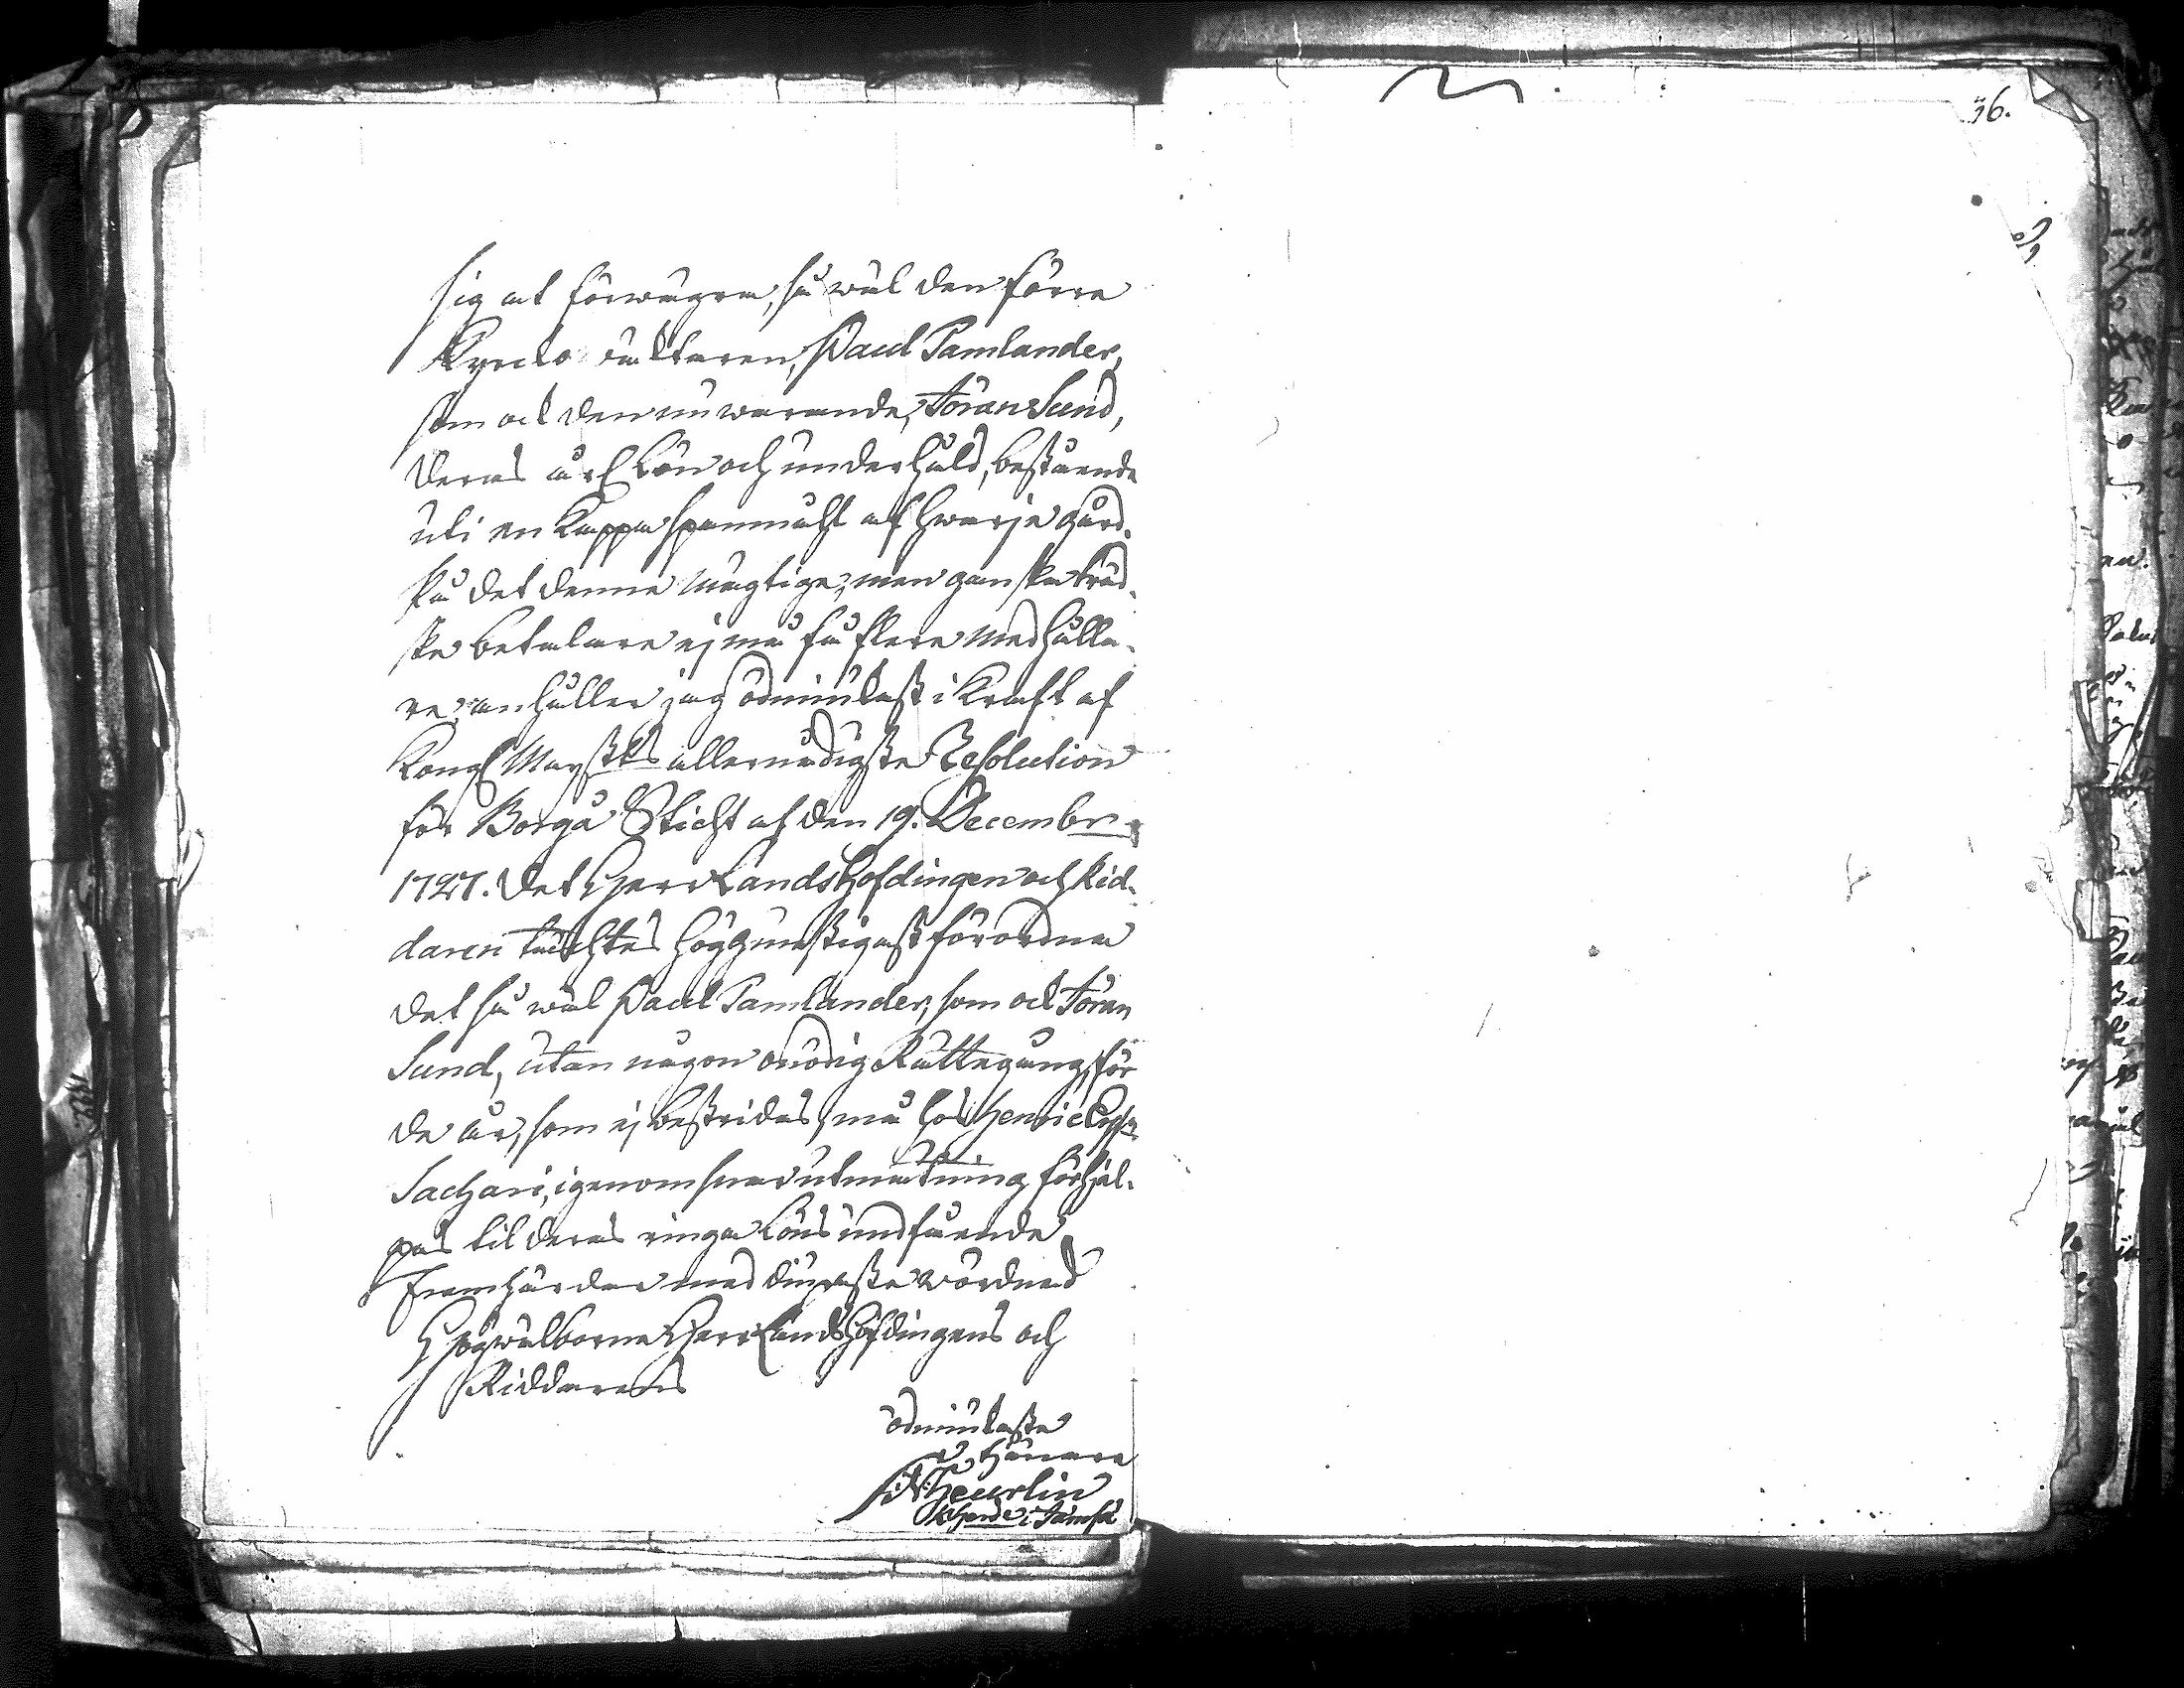 36.
sig at förwägra, så wäl den förra
Kyrcko wäcktaren, Paul Tamlander,
som ock den nuwarande, Jöran Sund,
deras årl Lön och underhåld, bestående
uti en Kappa spannmåhl af hwarje gård.
På det denne mägtige, men ganska träd-
ske betalare ej må få flere medhålla-
re; anhåller jag ödmiukast i Kraft af
Kongl Mayst:ts allernådigste Resolution
för Borgå Sticht af den 19. Decembr:
1727. det Herr Landshöfdingen och Rid-
daren täcktes höggunstigast förordna
det så wäl Paul Tamlander, som ock Jöran
Sund, utan någon onödig Rättegång, för
de år, som ej bestridas, må hos Henric
Sachari, igenom snar utmätning förhjel-
pas til deras ringa Löns undfående
Framhärdar med diupaste wördnad
Högwälborne Herr Landshöfdingens och
Riddarens
ödmiukaste
tienare
Heurlin
KHerde i Jämsä